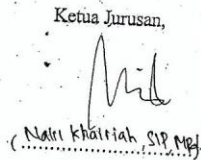 Ketua Jurusan,
(Nailul Khairiah, SIP, MPd)